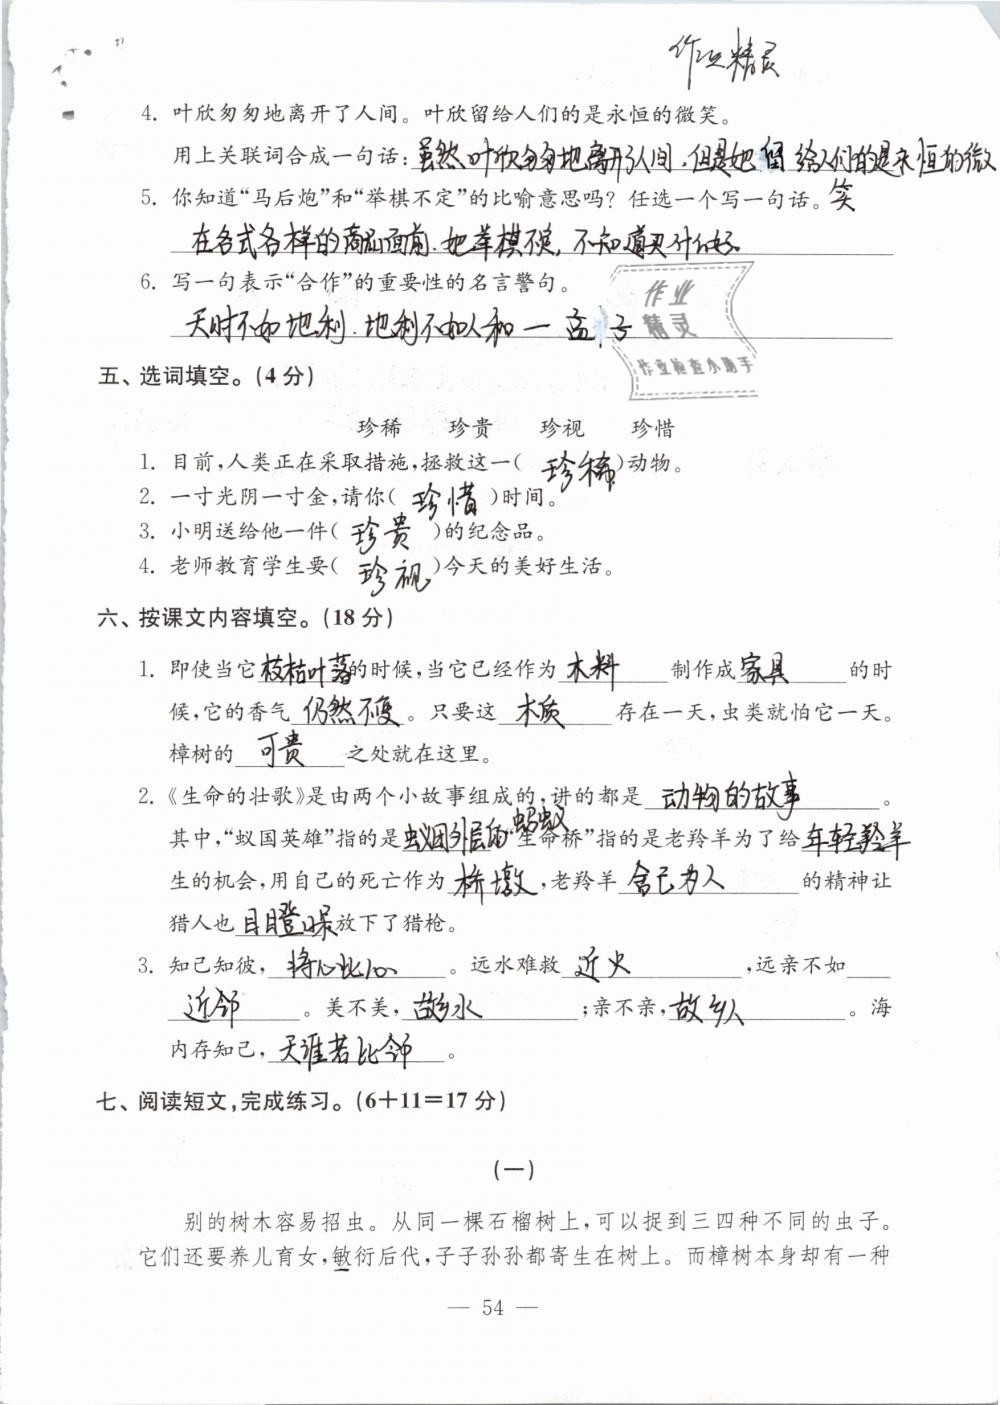 作业精灵
4. 叶欣匆匆地离开了人间。叶欣留给人们的是永恒的微笑。
用上关联词合成一句话：虽然叶欣匆匆地离开了人间，但是她留给人们的是永恒的微
5. 你知道“马后炮”和“举棋不定”的比喻意思吗？任选一个写一句话。笑
在各式各样的商品面前，她举棋不定，不知道买什么好。
6. 写一句表示“合作”的重要性的名言警句。
天时不如地利，地利不如人和 — 孟子
作业
精灵
作业检查小助手
五、选词填空。(4分)
珍稀 珍贵 珍视 珍惜
1. 目前，人类正在采取措施，拯救这一( 珍稀 )动物。
2. 一寸光阴一寸金，请你( 珍惜 )时间。
3. 小明送给他一件( 珍贵 )的纪念品。
4. 老师教育学生要( 珍视 )今天的美好生活。
六、按课文内容填空。(18分)
1. 即使当它枝枯叶落的时候，当它已经作为 木料 制作成 家具 的时
候，它的香气 仍然不变 。只要这 木质 存在一天，虫类就怕它一天。
樟树的 可贵 之处就在这里。
2.《生命的壮歌》是由两个小故事组成的，讲的都是 动物的故事 。
其中，“蚁国英雄”指的是蚁团外层的蚂蚁“生命桥”指的是老羚羊为了给年轻羚羊
生的机会，用自己的死亡作为 桥墩 ，老羚羊 舍己为人 的精神让
猎人也 目瞪口呆 放下了猎枪。
3. 知己知彼， 将心比心 。远水难救 近火 ，远亲不如
近邻 。美不美， 故乡水 ；亲不亲， 故乡人 。海
内存知己， 天涯若比邻 。
七、阅读短文，完成练习。(6+11=17分)
(一)
别的树木容易招虫。从同一棵石榴树上，可以捉到三四种不同的虫子。
它们还要养儿育女，敏衍后代，子子孙孙都寄生在树上。而樟树本身却有一种
— 54 —